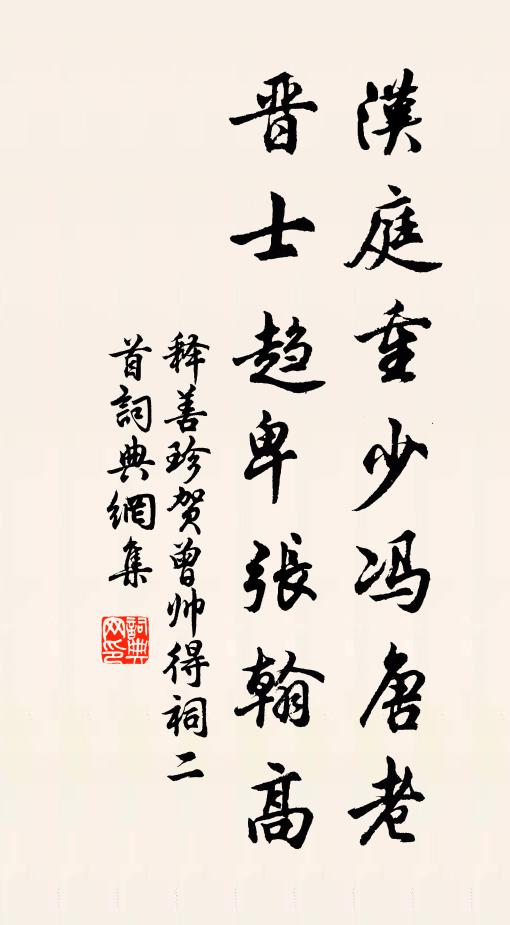 漢庭重少冯唐老
晋士趋卑張翰高
释善珍贺曾帅得祠二
首詞典網集
詞典
网印